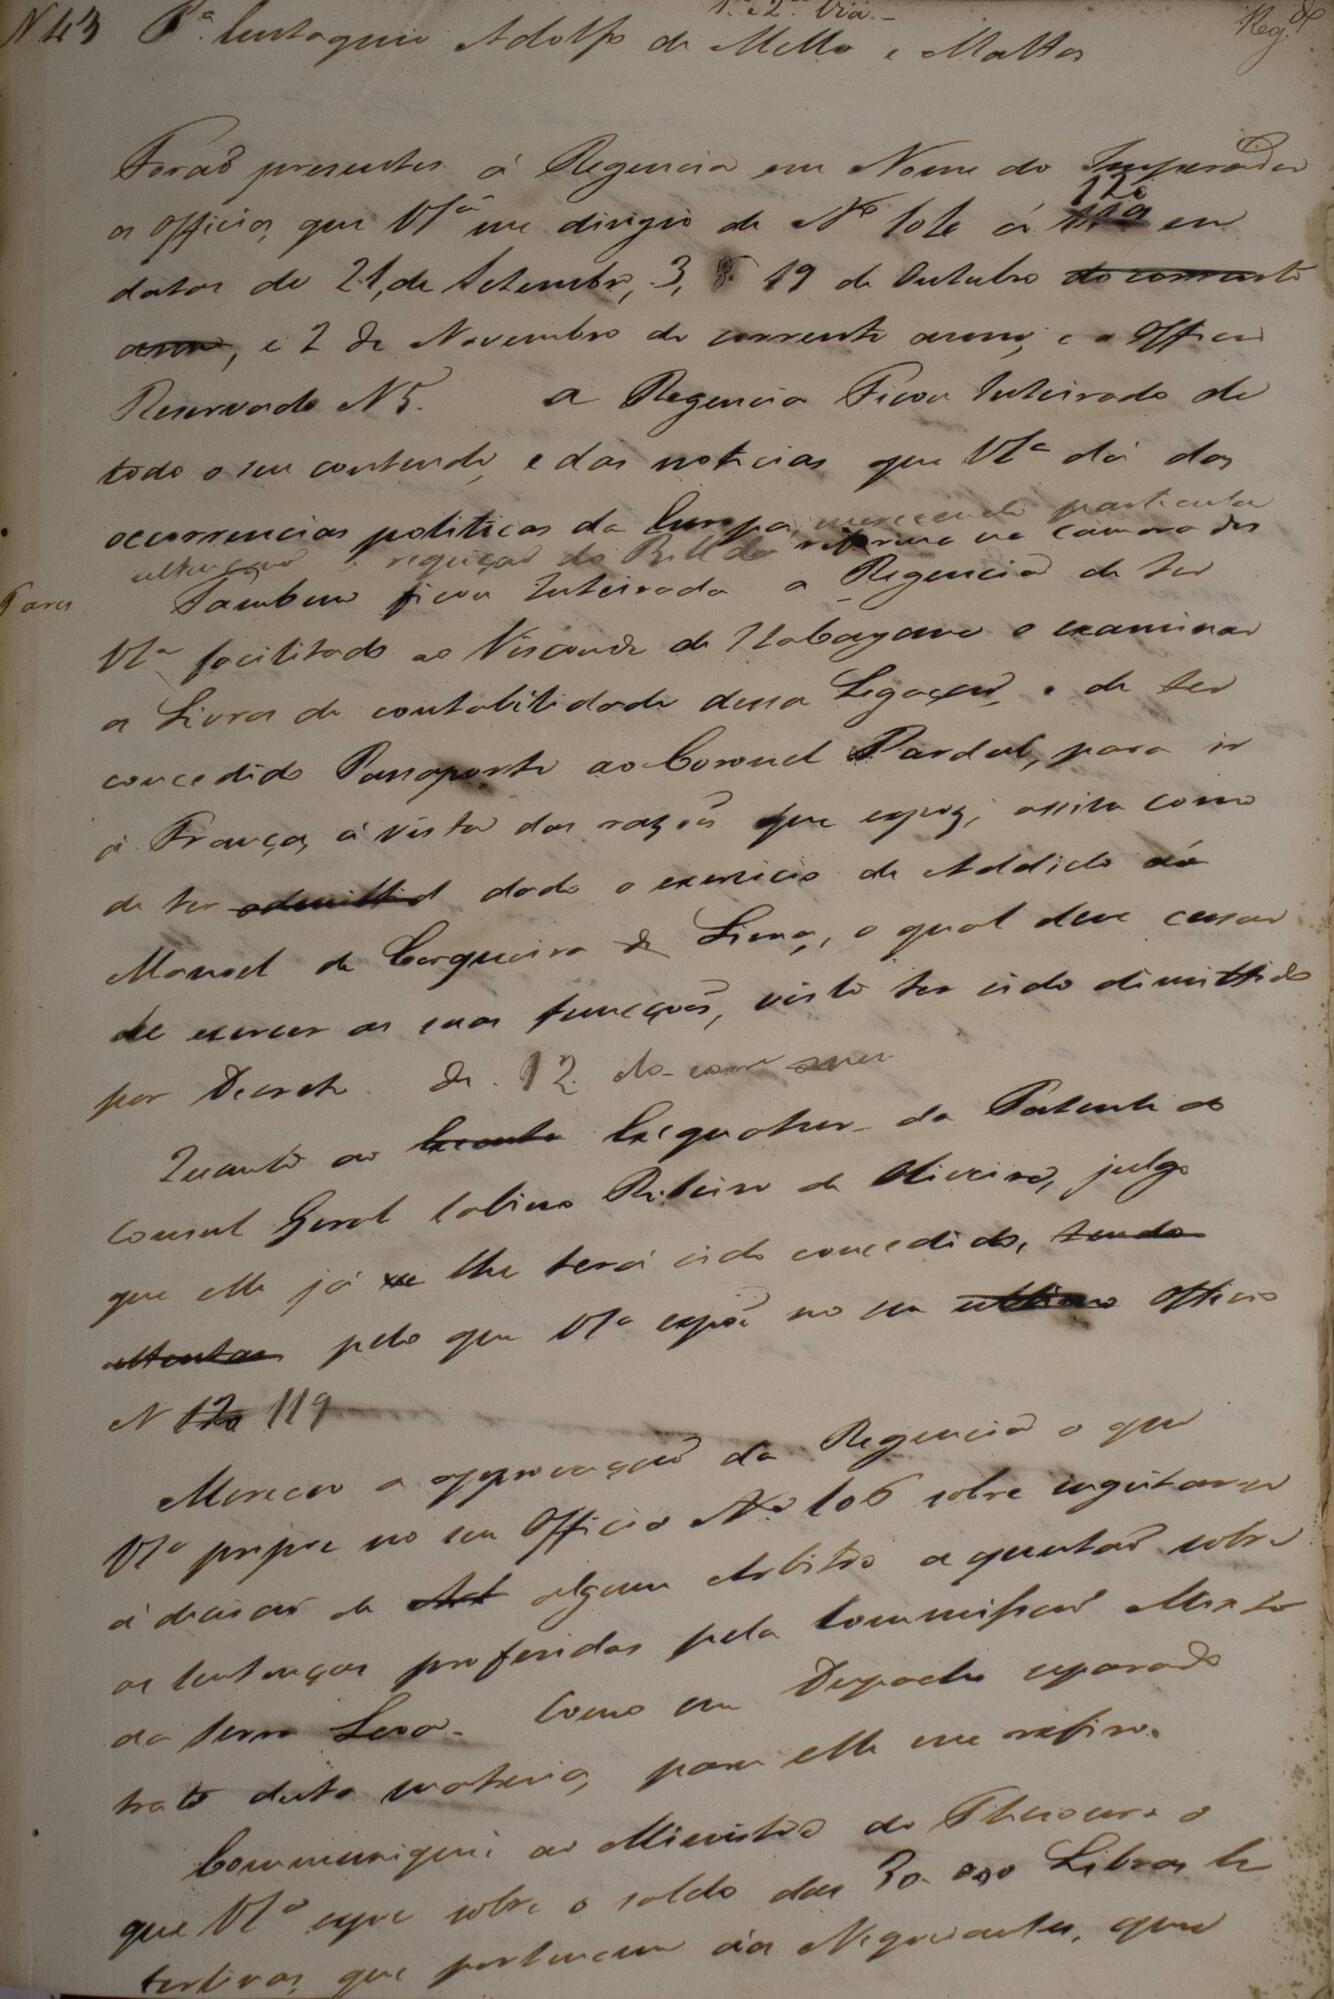 1.ª e 2.ª Via
N 43 P.ª Eustaquio Adolfo de Mello e Mattos Reg.do
Forão presentes á Regencia em Nome do Imperador
os Officios, que VS.ª me dirigio de Nº 101 á 120 em
datas de 21, de Setembro, 3, 19 de Outubro do corrente
anno, e 2 de Novembro do corrente anno, e o Officio
Reservado N 5. A Regencia Ficou Inteirada de
todo o seu contendo, e das noticias que VS.ª dá das
occurrencias politicas da Europa, merecendo particular
attenção a regeição do Bill da reforma na Camara dos
Pares Tambem ficou Inteirada a Regencia de ter
VS.ª facilitado ao Visconde de Itabayana o examinar
os Livros de contabilidade dessa Legação, e de ter
concedido Passaporte ao Coronel Pardal, para ir
á França, á vista das razões que expoz; assim como
de ter admittid dado o exercicio de Addido ao
Manoel de Cerqueira de Lima, o qual deve cessar
de exercer as suas funcções, visto ter sido dimittido
por Decreto de 12 do corr anno
Quanto ao Exequatur da Patente do
Consul Geral Sabino Ribeiro de Oliveira, julgo
que elle já lhe terá sido concedido, tendo
attentas pelo que VS.ª expõe no seu ultimo Officio
N 120 119
Mereceo a approvação da Regencia o que
VS.ª propoe no seu Officio Nº 106 sobre sugeitar-se
á decisão de algum Arbitro a questão sobre
as Sentenças proferidas pela Commissão Mixta
da Serra Leoa. Como em Despacho separado
trato desta materia, para elle me refiro.
Communiquei ao Ministro do Thesouro o
que VS.ª expoe sobre o saldo das 30.000 Libras Es
terlinas, que pertencem aos Negociantes, que